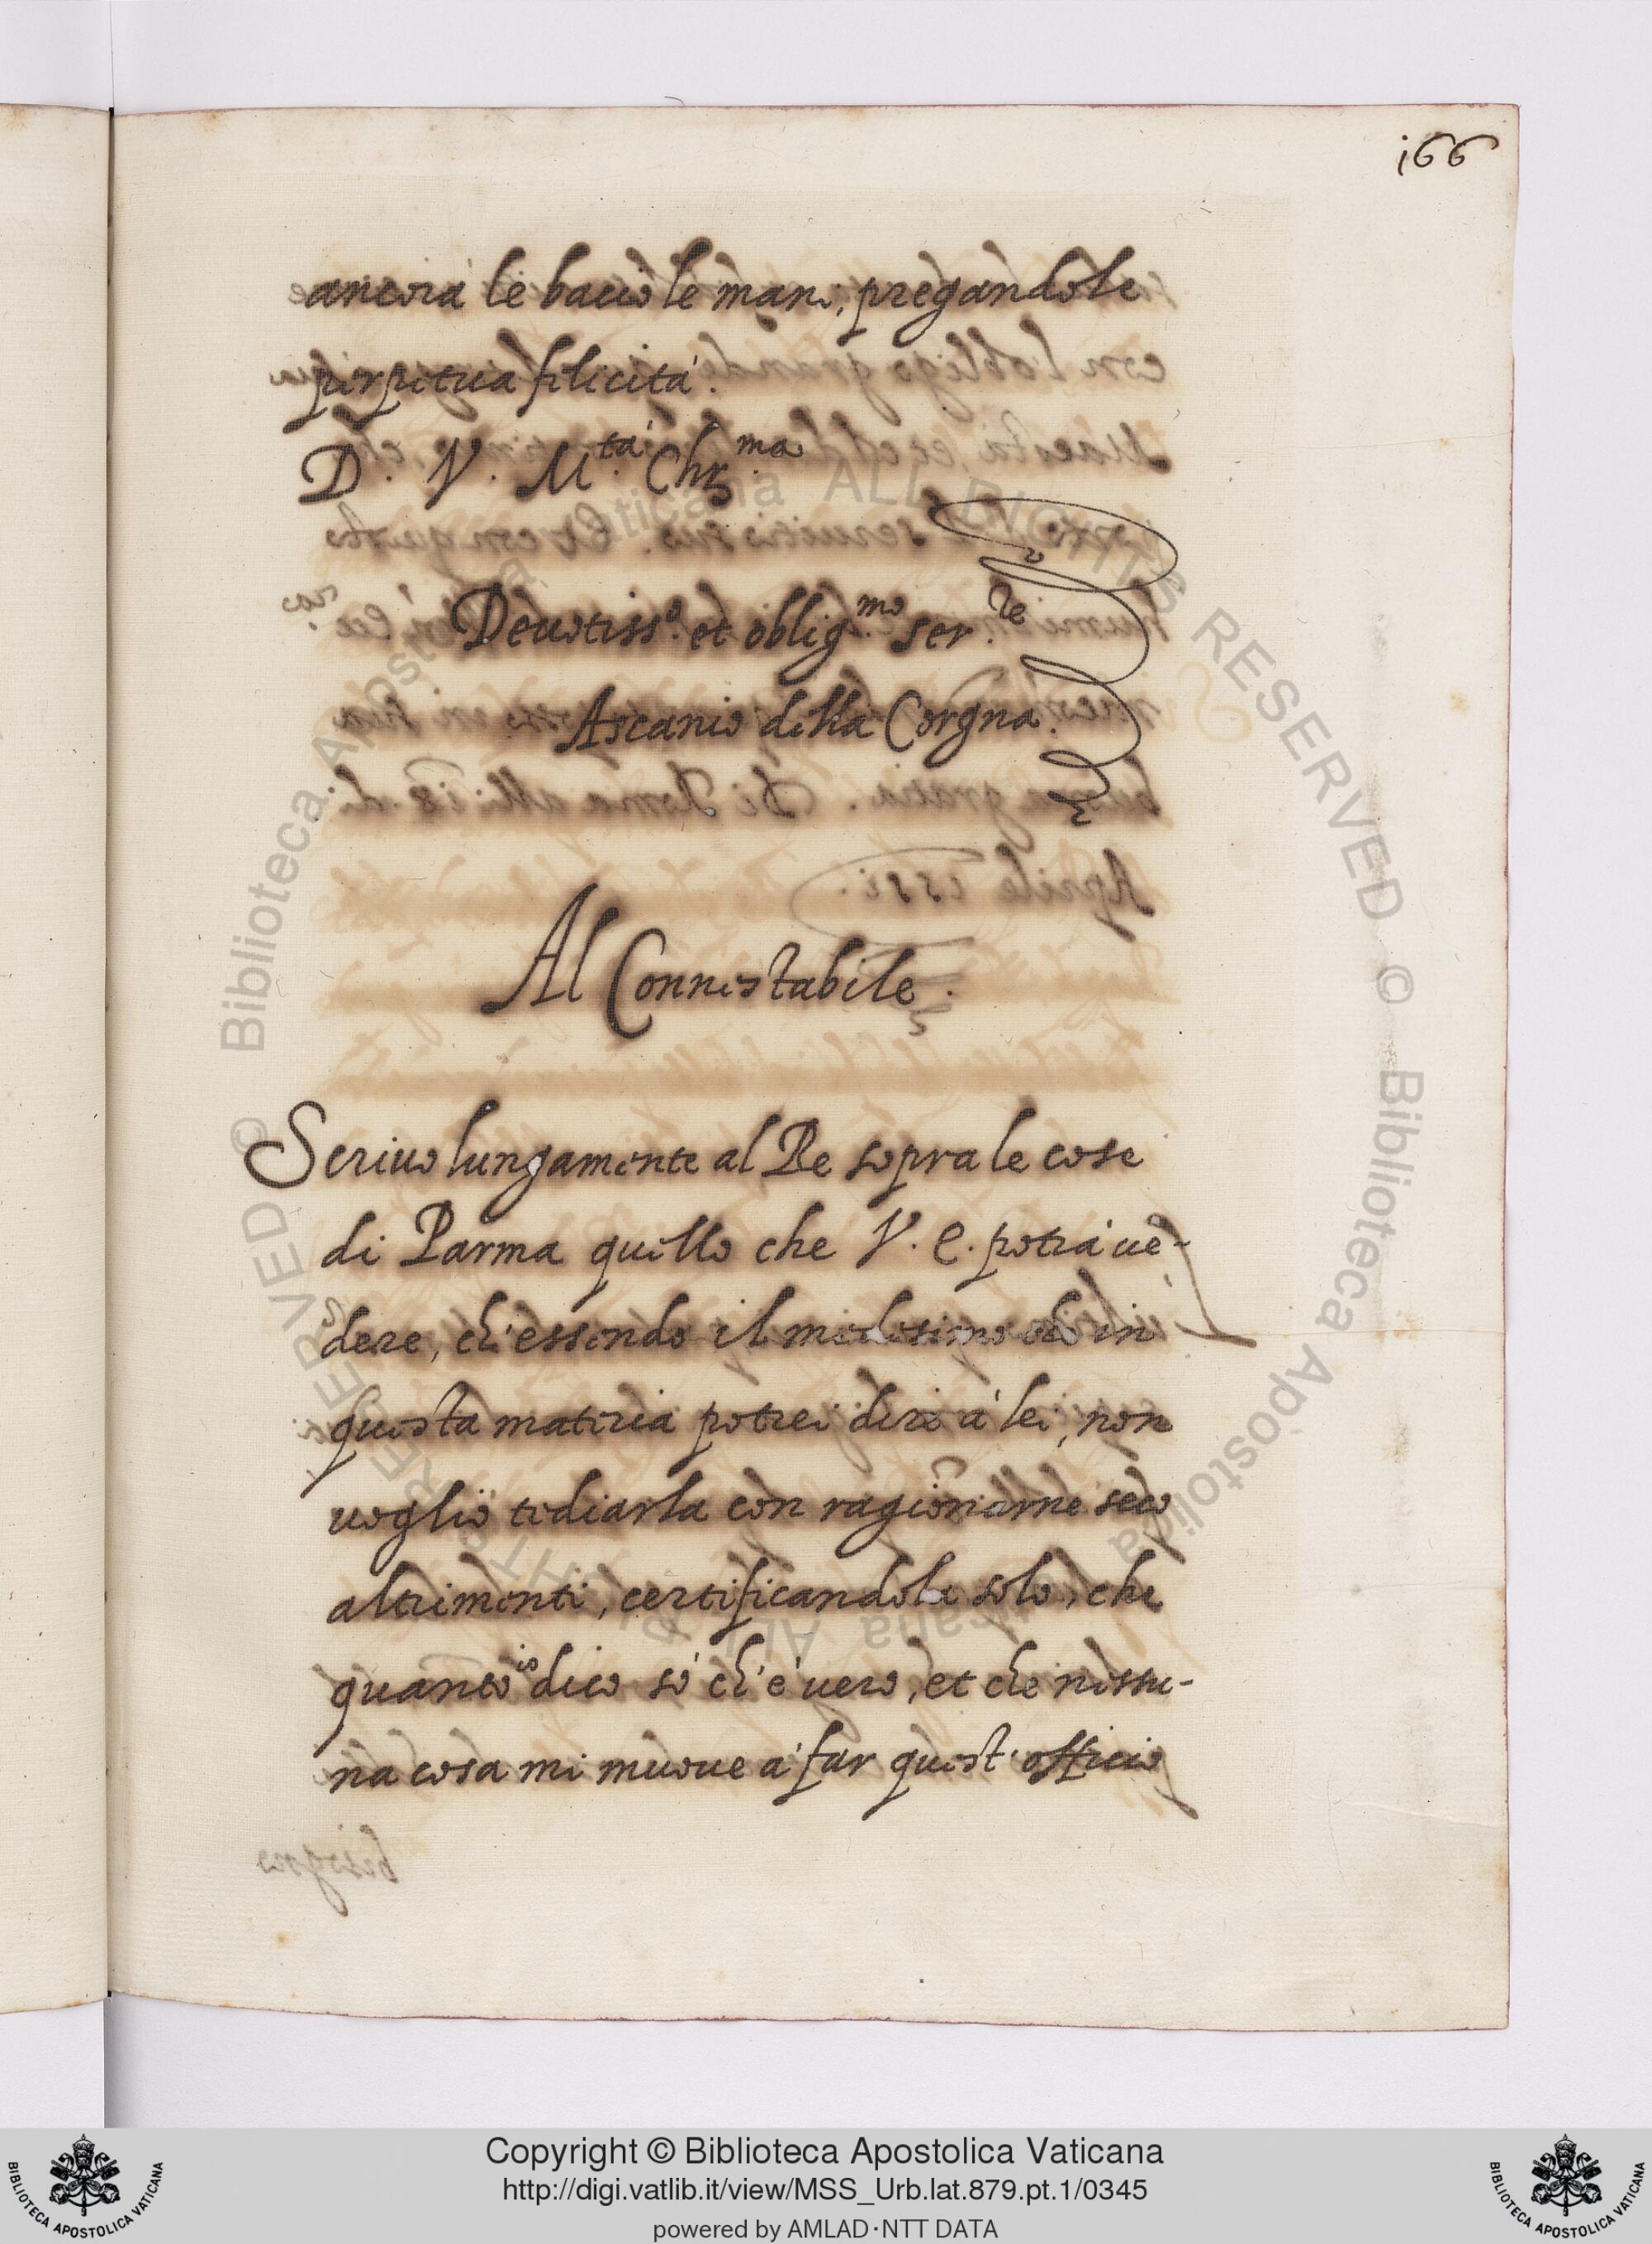 i66
ancora le bacio le mani, pregandole
perpetua felicità.
D. V. M.tà Chr.ma
Deuotiss.o et oblig.mo ser.re
Ascanio della Corgna.
Al Connestabile.
Scriuo lungamente al Re sopra le cose
di Parma quello che V. E. potrà ue-
dere, ch'essendo il medesimo ch'io in
questa materia potrei dire à lei, non
uoglio tediarla con ragionarne seco
altrimenti, certificandola solo, che
quanto io dico sò ch'è uero, et che nissu-
na cosa mi muoue à far quest'officio
Copyright © Biblioteca Apostolica Vaticana
http://digi.vatlib.it/view/MSS_Urb.lat.879.pt.1/0345
powered by AMLAD·NTT DATA
BIBLIOTECA APOSTOLICA VATICANA
BIBLIOTECA APOSTOLICA VATICANA
© Biblioteca Apostolica Vaticana ALL RIGHTS RESERVED
© Biblioteca Apostolica Vaticana ALL RIGHTS RESERVED